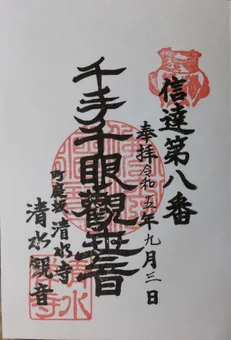 信達第八番
奉拝令和五年九月三日
千手千眼觀世音
清水寺
清水観音